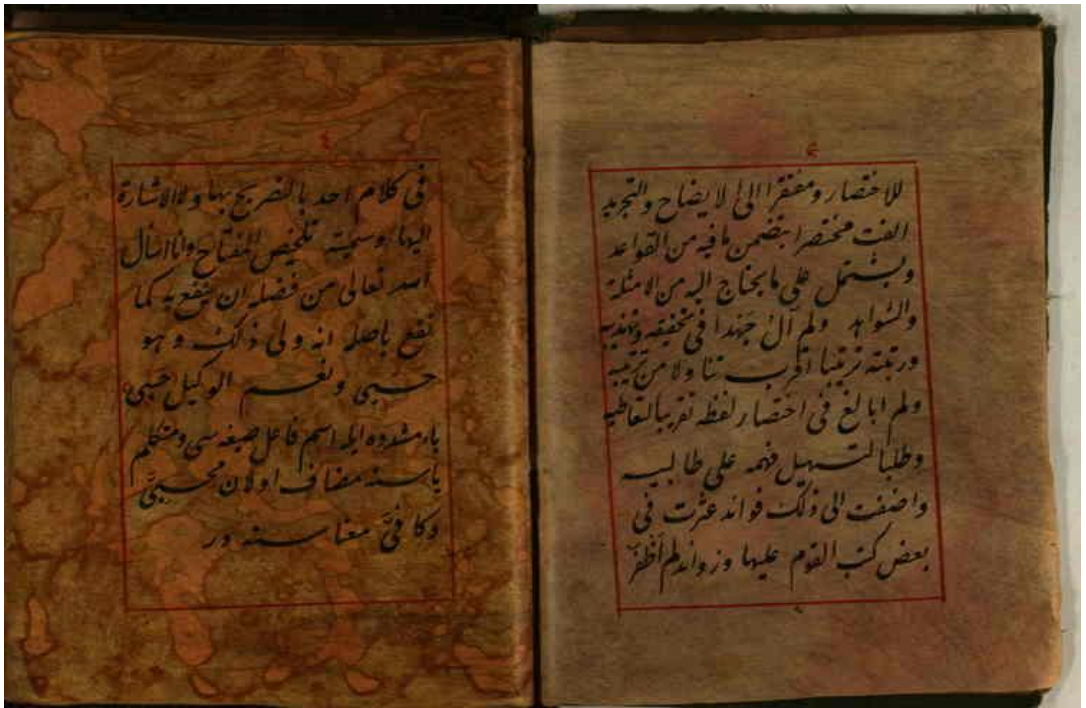 للاختصار ومفتقرا الى الايضاح والتجريد
الفت مختصرا يتضمن ما فيه من القواعد
ويشتمل على ما يحتاج اليه من الامثلة
والشواهد ولم آل جهدا فى تحقيقه وتهذيبه
ورتبته ترتيبا اقرب تناولا من ترتيبه
ولم ابالغ فى اختصار لفظه تقريبا لتعاطيه
وطلبا لتسهيل فهمه على طالبيه
واضفت الى ذلك فوائد عثرت فى
بعض كتب القوم عليها وزوائد لم أظفر
٤
فى كلام احد بالتصريح بها ولا الاشارة
اليها وسميته تلخيص المفتاح وانا اسأل
الله تعالى من فضله ان ينفع به كما
نفع باصله انه ولى ذلك وهو
حسبى ونعم الوكيل حسبى
ياء مشدده ايله اسم فاعل صيغه سى ومتكلم
ياسنه مضاف اولان محسبىّ
وكافىّ معناسنه در